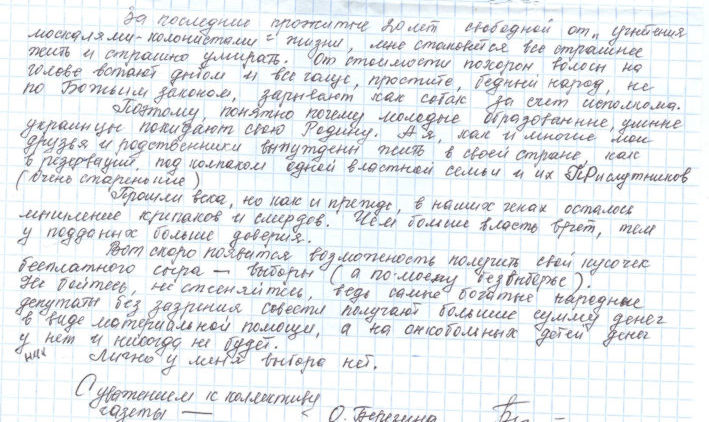 За последние прожитые 20 лет свободной от „ угнетения
москалями-колонистами" жизни, мне становится все страшнее
жить и страшно умирать. От стоимости похорон волосы на
голове встают дыбом и все чаще, простите, бедный народ, не
по Божьим законам, зарывают как собак за счет исполкома.
Поэтому, понятно почему молодые образованные, умные
украинцы покидают свою Родину. А я, как и многие мои
друзья и родственники вынуждены жить в своей стране, как
в резервации под колпаком одной властной семьи и их ПРислутников
(очень старенькие)
Прошли века, но как и прежде, в наших генах осталось
мышление крипаков и смердов. Чем больше власть врет, тем
у подданных больше доверия.
Вот скоро появится возможность получить свой кусочек
бесплатного сыра — выборы (а по-моему безвыборье).
Не бойтесь, не стесняйтесь, ведь самые богатые народные
депутаты без зазрения совести получают большие суммы денег
в виде материальной помощи, а на онкобольных детей денег
у них нет и никогда не будет.
Лично у меня выбора нет.
С уважением к коллективу
газеты — О. Берегина